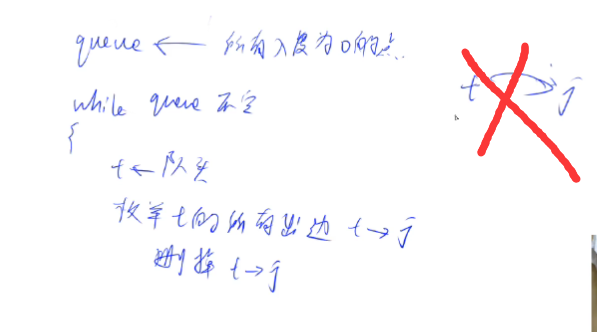 queue ← 所有入度为0的点
while queue 不空
{
t ← 队头
枚举t的所有出边 t→j
删掉 t→j
t → j